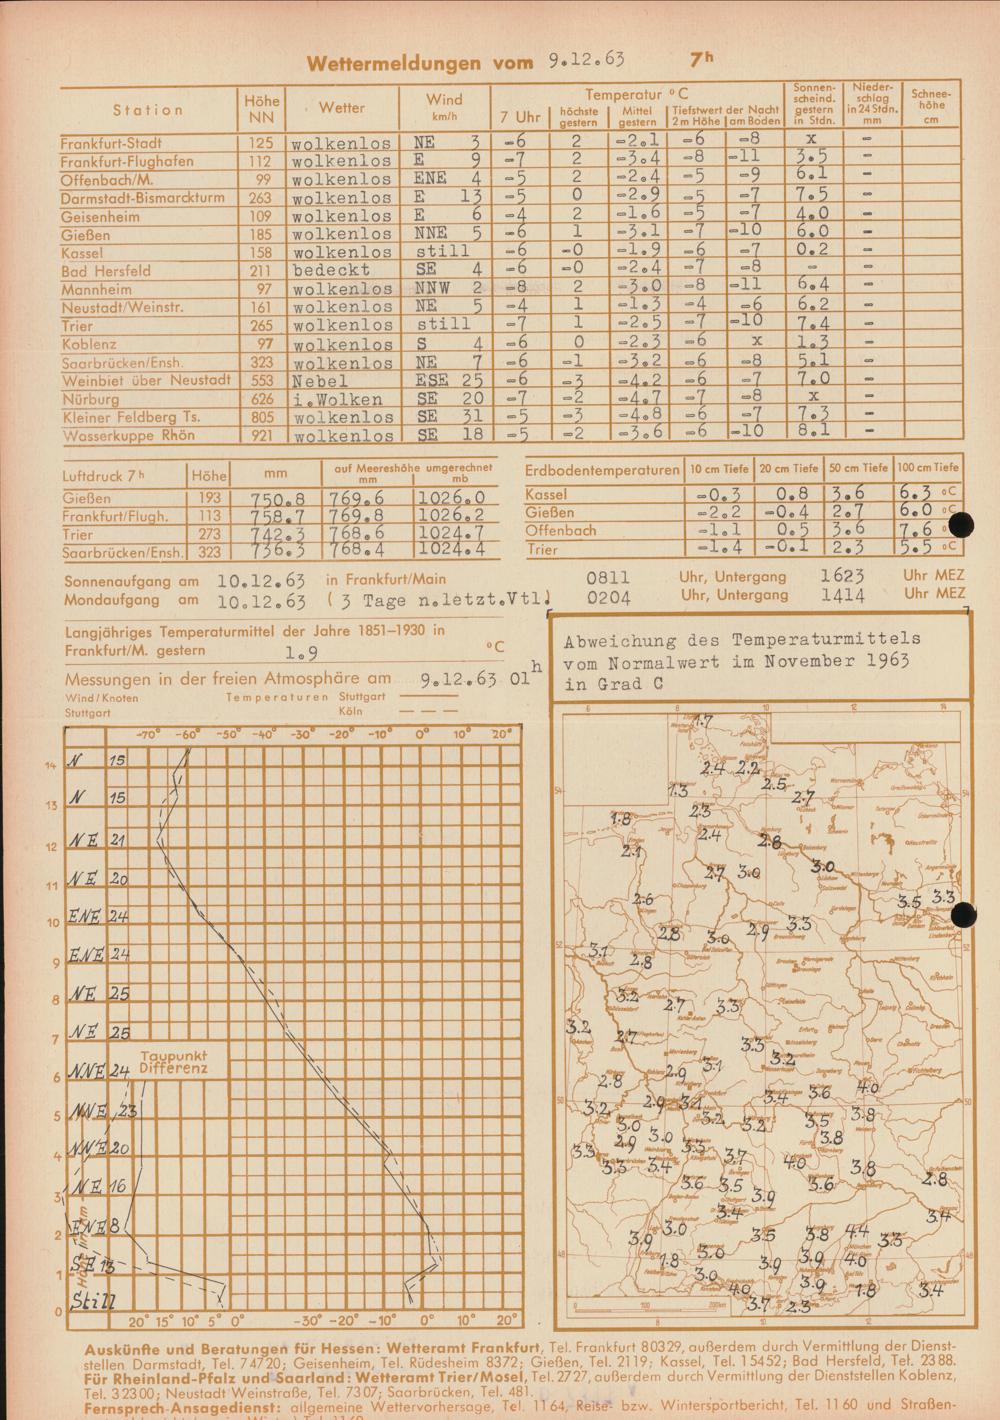 Wettermeldungen vom 9.12.63 7h
Station Höhe NN Wetter Wind km/h Temperatur °C Sonnenscheind. gestern in Stdn. Niederschlag in 24 Stdn. mm Schneehöhe cm
7 Uhr höchste gestern Mittel gestern Tiefstwert der Nacht 2m Höhe am Boden
Frankfurt-Stadt 125 wolkenlos NE 3 -6 2 -2.1 -6 -8 x -
Frankfurt-Flughafen 112 wolkenlos E 9 -7 2 -3.4 -8 -11 3.5 -
Offenbach/M. 99 wolkenlos ENE 4 -5 2 -2.4 -5 -9 6.1 -
Darmstadt-Bismarckturm 263 wolkenlos E 13 -5 0 -2.9 -5 -7 7.5 -
Geisenheim 109 wolkenlos E 6 -4 2 -1.6 -5 -7 4.0 -
Gießen 185 wolkenlos NNE 5 -6 1 -3.1 -7 -10 6.0 -
Kassel 158 wolkenlos still -6 -0 -1.9 -6 -7 0.2 -
Bad Hersfeld 211 bedeckt SE 4 -6 -0 -2.4 -7 -8 - -
Mannheim 97 wolkenlos NNW 2 -8 2 -3.0 -8 -11 6.4 -
Neustadt/Weinstr. 161 wolkenlos NE 5 -4 1 -1.3 -4 -6 6.2 -
Trier 265 wolkenlos still -7 1 -2.5 -7 -10 7.4 -
Koblenz 97 wolkenlos S 4 -6 0 -2.3 -6 x 1.3 -
Saarbrücken/Ensh. 323 wolkenlos NE 7 -6 -1 -3.2 -6 -8 5.1 -
Weinbiet über Neustadt 553 Nebel ESE 25 -6 -3 -4.2 -6 -7 7.0 -
Nürburg 626 i.Wolken SE 20 -7 -2 -4.7 -7 -8 x -
Kleiner Feldberg Ts. 805 wolkenlos SE 31 -5 -3 -4.8 -6 -7 7.3 -
Wasserkuppe Rhön 921 wolkenlos SE 18 -5 -2 -3.6 -6 -10 8.1 -
Luftdruck 7h Höhe mm auf Meereshöhe umgerechnet mm mb
Gießen 193 750.8 769.6 1026.0
Frankfurt/Flugh. 113 758.7 769.8 1026.2
Trier 273 742.3 768.6 1024.7
Saarbrücken/Ensh. 323 736.3 768.4 1024.4
Erdbodentemperaturen 10 cm Tiefe 20 cm Tiefe 50 cm Tiefe 100 cm Tiefe
Kassel -0.3 0.8 3.6 6.3 °C
Gießen -2.2 -0.4 2.7 6.0 °C
Offenbach -1.1 0.5 3.6 7.6 °
Trier -1.4 -0.1 2.3 5.5 °C
Sonnenaufgang am 10.12.63 in Frankfurt/Main 0811 Uhr, Untergang 1623 Uhr MEZ
Mondaufgang am 10.12.63 (3 Tage n.letzt.Vtl.) 0204 Uhr, Untergang 1414 Uhr MEZ
Langjähriges Temperaturmittel der Jahre 1851–1930 in
Frankfurt/M. gestern 1.9 °C
Messungen in der freien Atmosphäre am 9.12.63 01h
Wind/Knoten Temperaturen Stuttgart
Stuttgart Köln
-70° -60° -50° -40° -30° -20° -10° 0° 10° 20°
14 N 15
13 N 15
12 NE 21
11 NE 20
10 ENE 24
9 ENE 24
8 NE 25
7 NE 25
Taupunkt
Differenz
6 NNE 24
5 NNE 23
4 NNE 20
3 NE 16
2 ENE 8
1 SE 13
0 Still
Höhe in km
20° 15° 10° 5° 0° -30° -20° -10° 0° 10° 20°
Abweichung des Temperaturmittels
vom Normalwert im November 1963
in Grad C
6 8 10 12 14
1.7
2.4 2.2
1.3 2.5
2.7
1.8 2.3
2.4 2.8
2.1
2.7 3.0 3.0
2.6 3.5 3.3
2.8 3.0 2.9 3.3
3.1 2.8
3.2 2.7 3.3
3.2 2.7 3.3
3.2
2.8 2.9 3.1
3.4 3.6 4.0
3.2 2.9 3.4
3.0 3.2 3.2 3.5 3.8
2.9 3.0 3.3 3.8
3.3 3.3 3.4 3.7 4.0 3.8
3.6 3.5 3.6 2.8
3.9
3.4 3.4
3.0 3.5 3.8 4.4 3.3
3.9 3.0
1.8 3.9 3.9 4.0
3.0 4.0 3.9 1.8 3.4
3.7 2.3
0 100 200km
8 10 12
Auskünfte und Beratungen für Hessen: Wetteramt Frankfurt, Tel. Frankfurt 80329, außerdem durch Vermittlung der Dienst-
stellen Darmstadt, Tel. 74720; Geisenheim, Tel. Rüdesheim 8372; Gießen, Tel. 2119; Kassel, Tel. 15452; Bad Hersfeld, Tel. 2388.
Für Rheinland-Pfalz und Saarland: Wetteramt Trier/Mosel, Tel. 2727, außerdem durch Vermittlung der Dienststellen Koblenz,
Tel. 32300; Neustadt/Weinstraße, Tel. 7307; Saarbrücken, Tel. 481.
Fernsprech-Ansagedienst: allgemeine Wettervorhersage, Tel. 1164, Reise- bzw. Wintersportbericht, Tel. 1160 und Straßen-